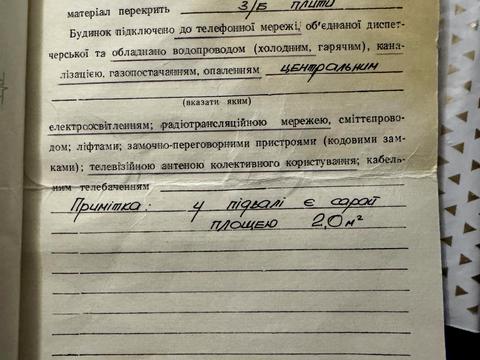 матеріал перекрить З/Б плити
Будинок підключено до телефонної мережі, об'єднаної диспет-
черської та обладнано водопроводом (холодним, гарячим), кана-
лізацією, газопостачанням, опаленням центральним
(вказати яким)
електроосвітленням; радіотрансляційною мережею, сміттєпрово-
дом; ліфтами; замочно-переговорними пристроями (кодовими зам-
ками); телевізійною антеною колективного користування; кабель-
ним телебаченням
Примітка: у підвалі є сарай
площею 2,0 м²